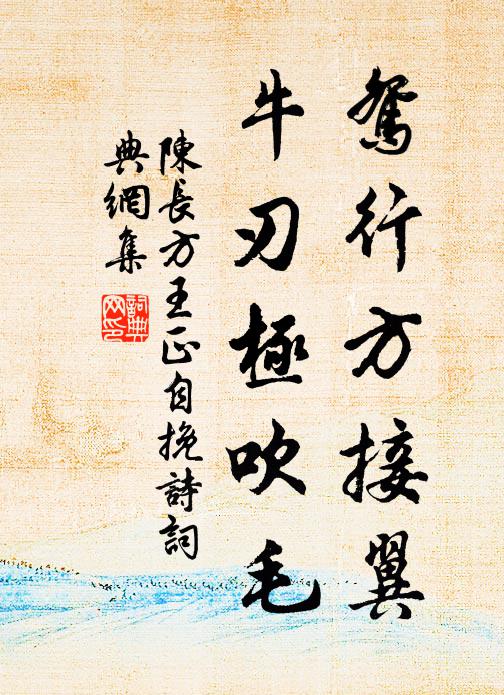 鴛行方接翼
牛刃極吹毛
陳長方王正自挽詩詞
典網集
詞典
网印